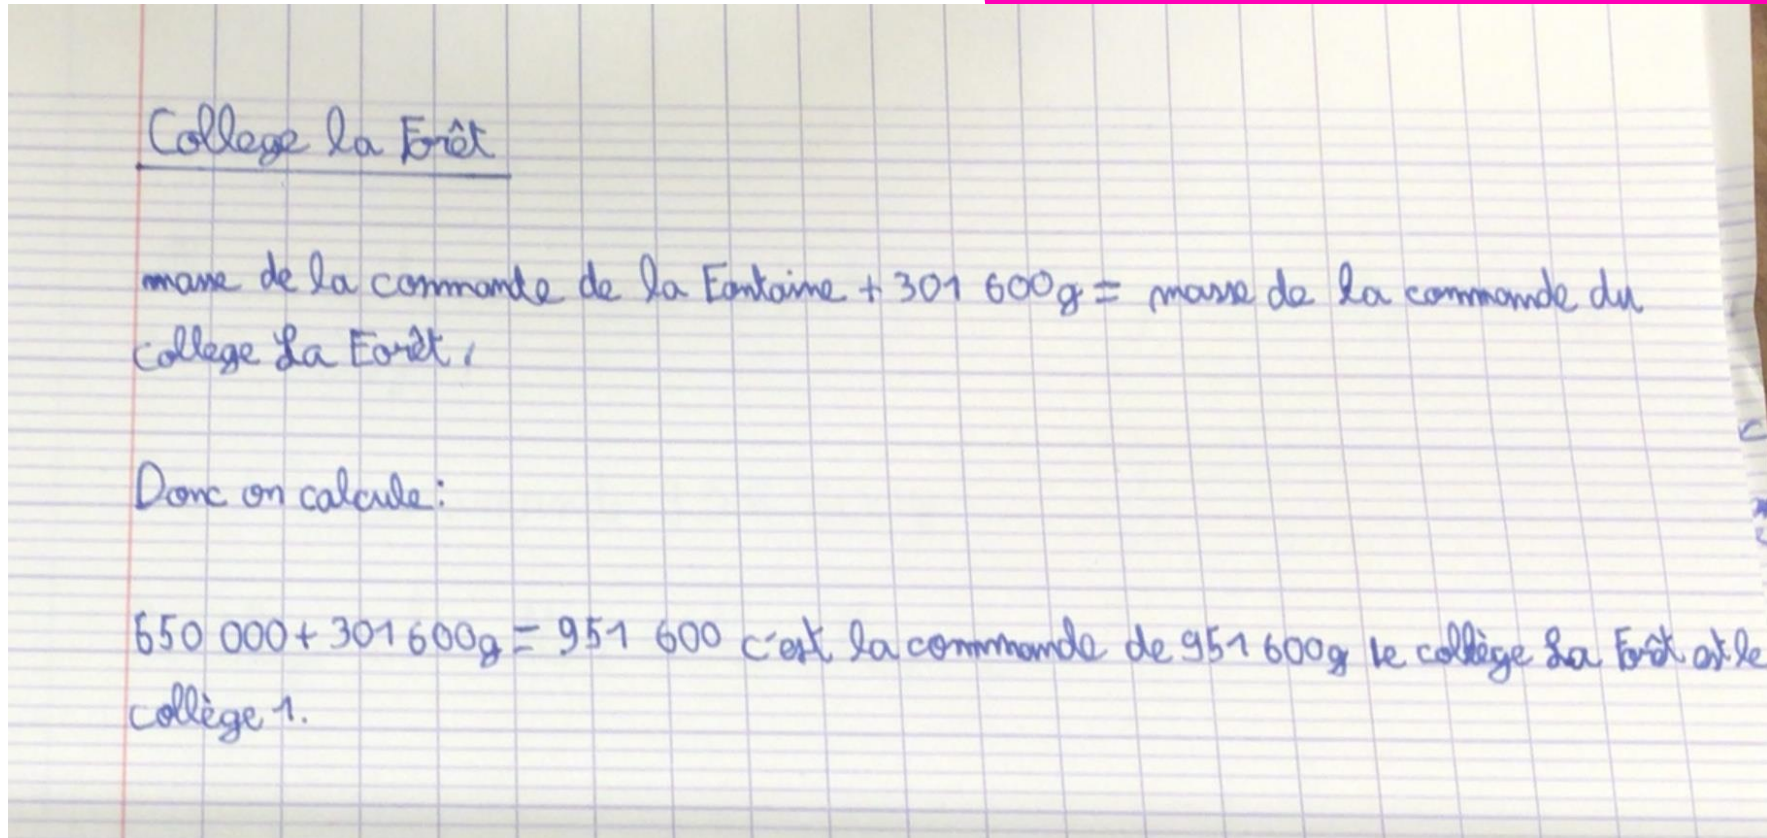 College la Forêt
masse de la commande de la Fontaine + 301 600g = masse de la commande du
college La Forêt.
Donc on calcule:
650 000 + 301 600g = 951 600 c'est la commande de 951 600g le collège La Forêt est le
collège 1.